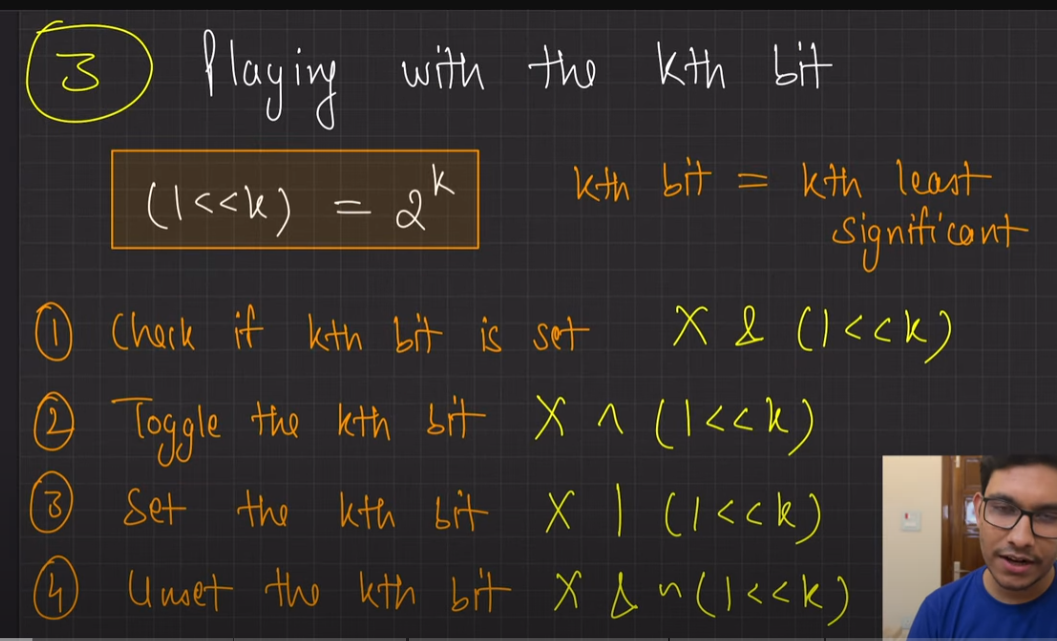 3 Playing with the kth bit
(1<<k) = 2^k
kth bit = kth least
significant
1 Check if kth bit is set X & (1<<k)
2 Toggle the kth bit X ^ (1<<k)
3 Set the kth bit X | (1<<k)
4 Unset the kth bit X & ~(1<<k)